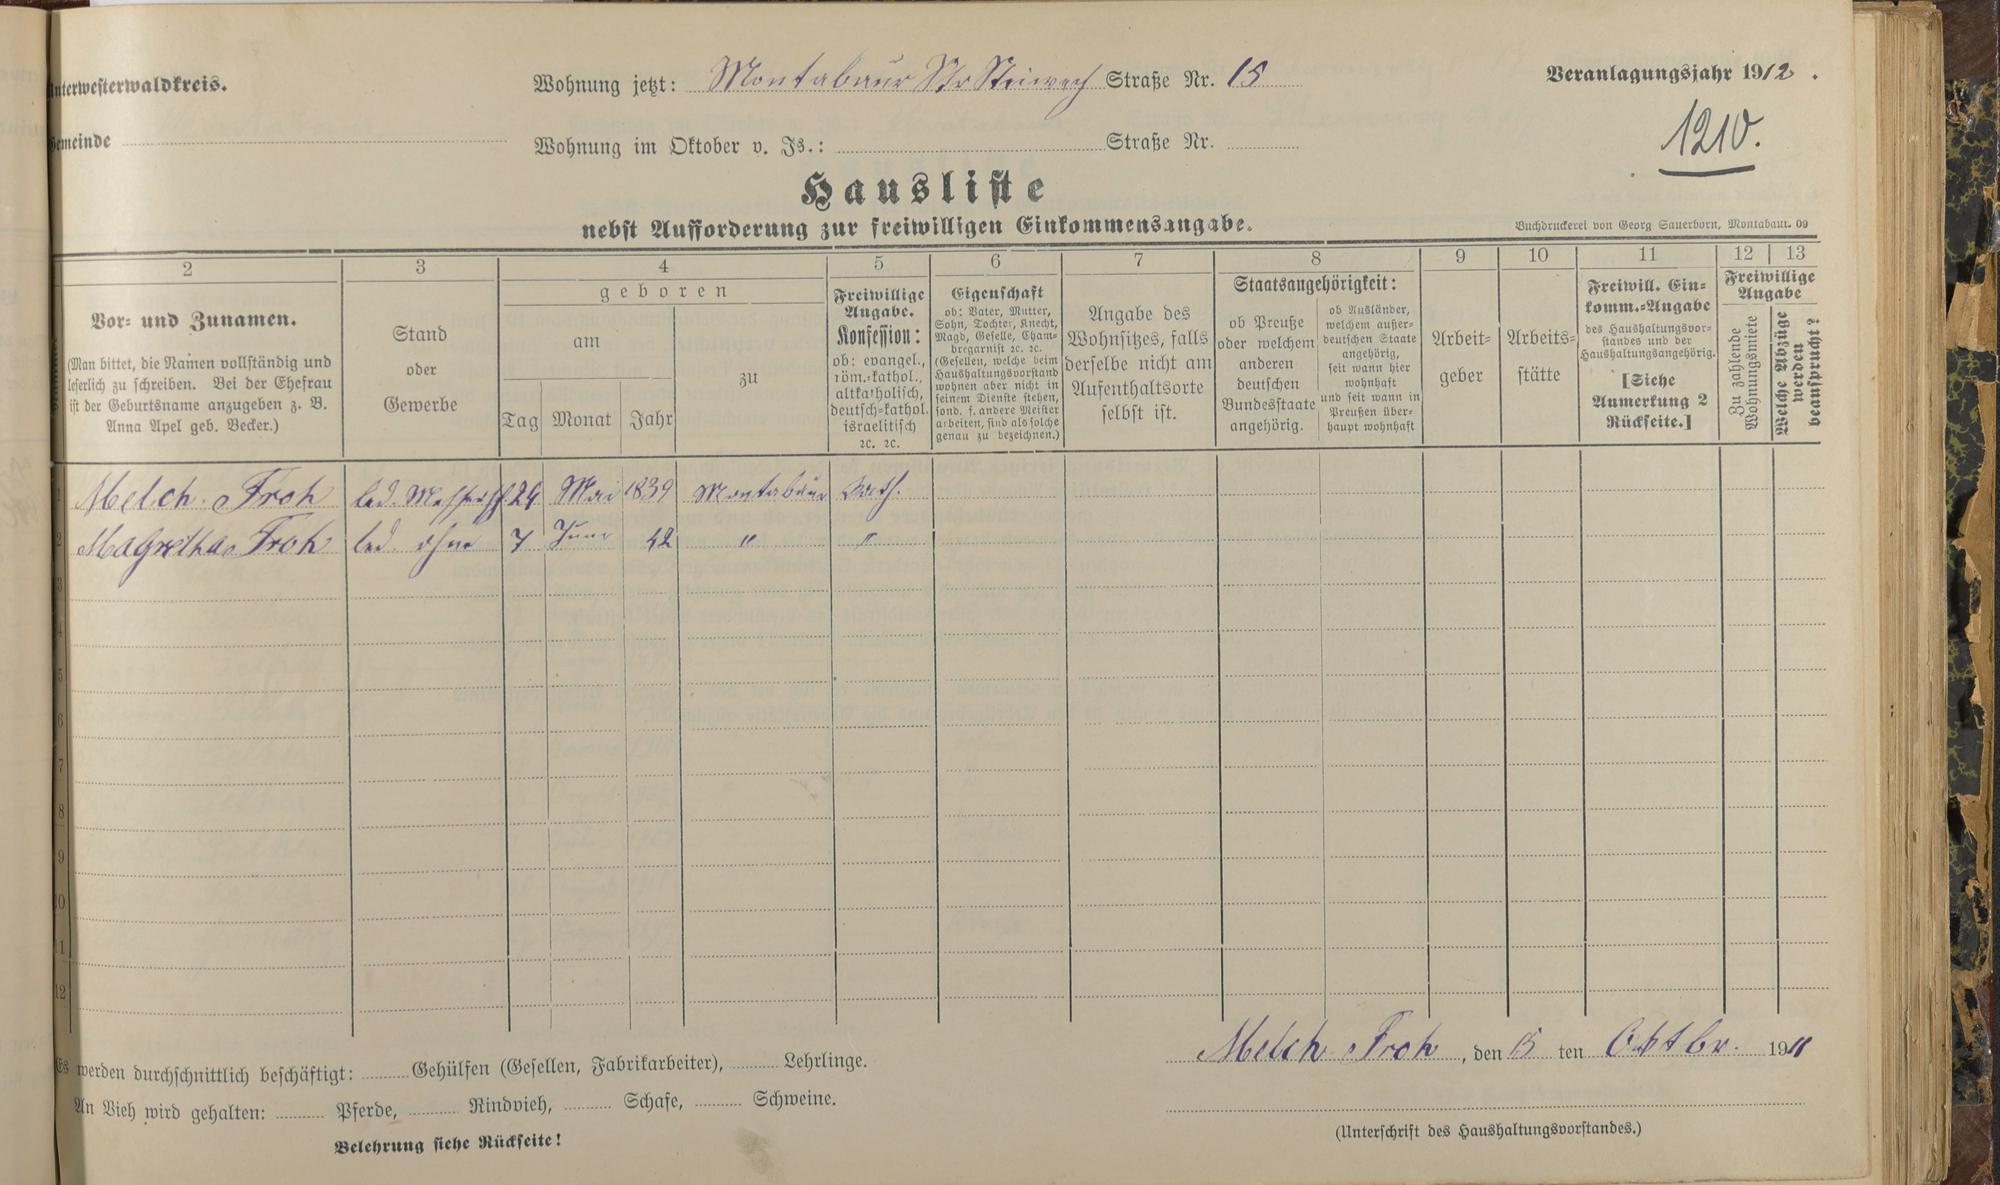 Unterwesterwaldkreis.
Wohnung jetzt: Montabaur Straße Nr. 15
Veranlagungsjahr 1912.
Gemeinde
Wohnung im Oktober v. Js.: Straße Nr.
1210.
Hausliste
nebst Aufforderung zur freiwilligen Einkommensangabe.
Buchdruckerei von Georg Sauerborn, Montabaur. 09
2 3 4 5 6 7 8 9 10 11 12 13
Vor- und Zunamen.
(Man bittet, die Namen vollständig und
leserlich zu schreiben. Bei der Ehefrau
ist der Geburtsname anzugeben z. B.
Anna Apel geb. Becker.)
Stand
oder
Gewerbe
geboren
am
Tag Monat Jahr
zu
Freiwillige
Angabe.
Konfession:
ob: evangel.,
röm.-kathol.,
altkatholisch,
deutsch-kathol.
israelitisch
2c. 2c.
Eigenschaft
ob: Vater, Mutter,
Sohn, Tochter, Knecht,
Magd, Geselle, Cham-
bregarnist 2c. 2c.
(Gesellen, welche beim
Haushaltungsvorstand
wohnen aber nicht in
seinem Dienste stehen,
sond. f. andere Meister
arbeiten, sind als solche
genau zu bezeichnen.)
Angabe des
Wohnsitzes, falls
derselbe nicht am
Aufenthaltsorte
selbst ist.
Staatsangehörigkeit:
ob Preuße
oder welchem
anderen
deutschen
Bundesstaate
angehörig.
ob Ausländer,
welchem außer-
deutschen Staate
angehörig,
seit wann hier
wohnhaft
und seit wann in
Preußen über-
haupt wohnhaft
Arbeit-
geber
Arbeits-
stätte
Freiwill. Ein-
komm.-Angabe
des Haushaltungsvor-
standes und der
Haushaltungsangehörig.
[Siehe
Anmerkung 2
Rückseite.]
Freiwillige
Angabe
Zu zahlende
Wohnungsmiete
Welche Abzüge
werden
beansprucht?
1 Melch. Froh led. 24 Mai 1839 Montabaur Kath.
2 Magretha Froh led. ohne 7 Juni 42 " "
3
4
5
6
7
8
9
10
11
12
Melch. Froh, den 15 ten Oktbr. 1911
Es werden durchschnittlich beschäftigt: Gehülfen (Gesellen, Fabrikarbeiter), Lehrlinge.
An Vieh wird gehalten: Pferde, Rindvieh, Schafe, Schweine.
(Unterschrift des Haushaltungsvorstandes.)
Belehrung siehe Rückseite!